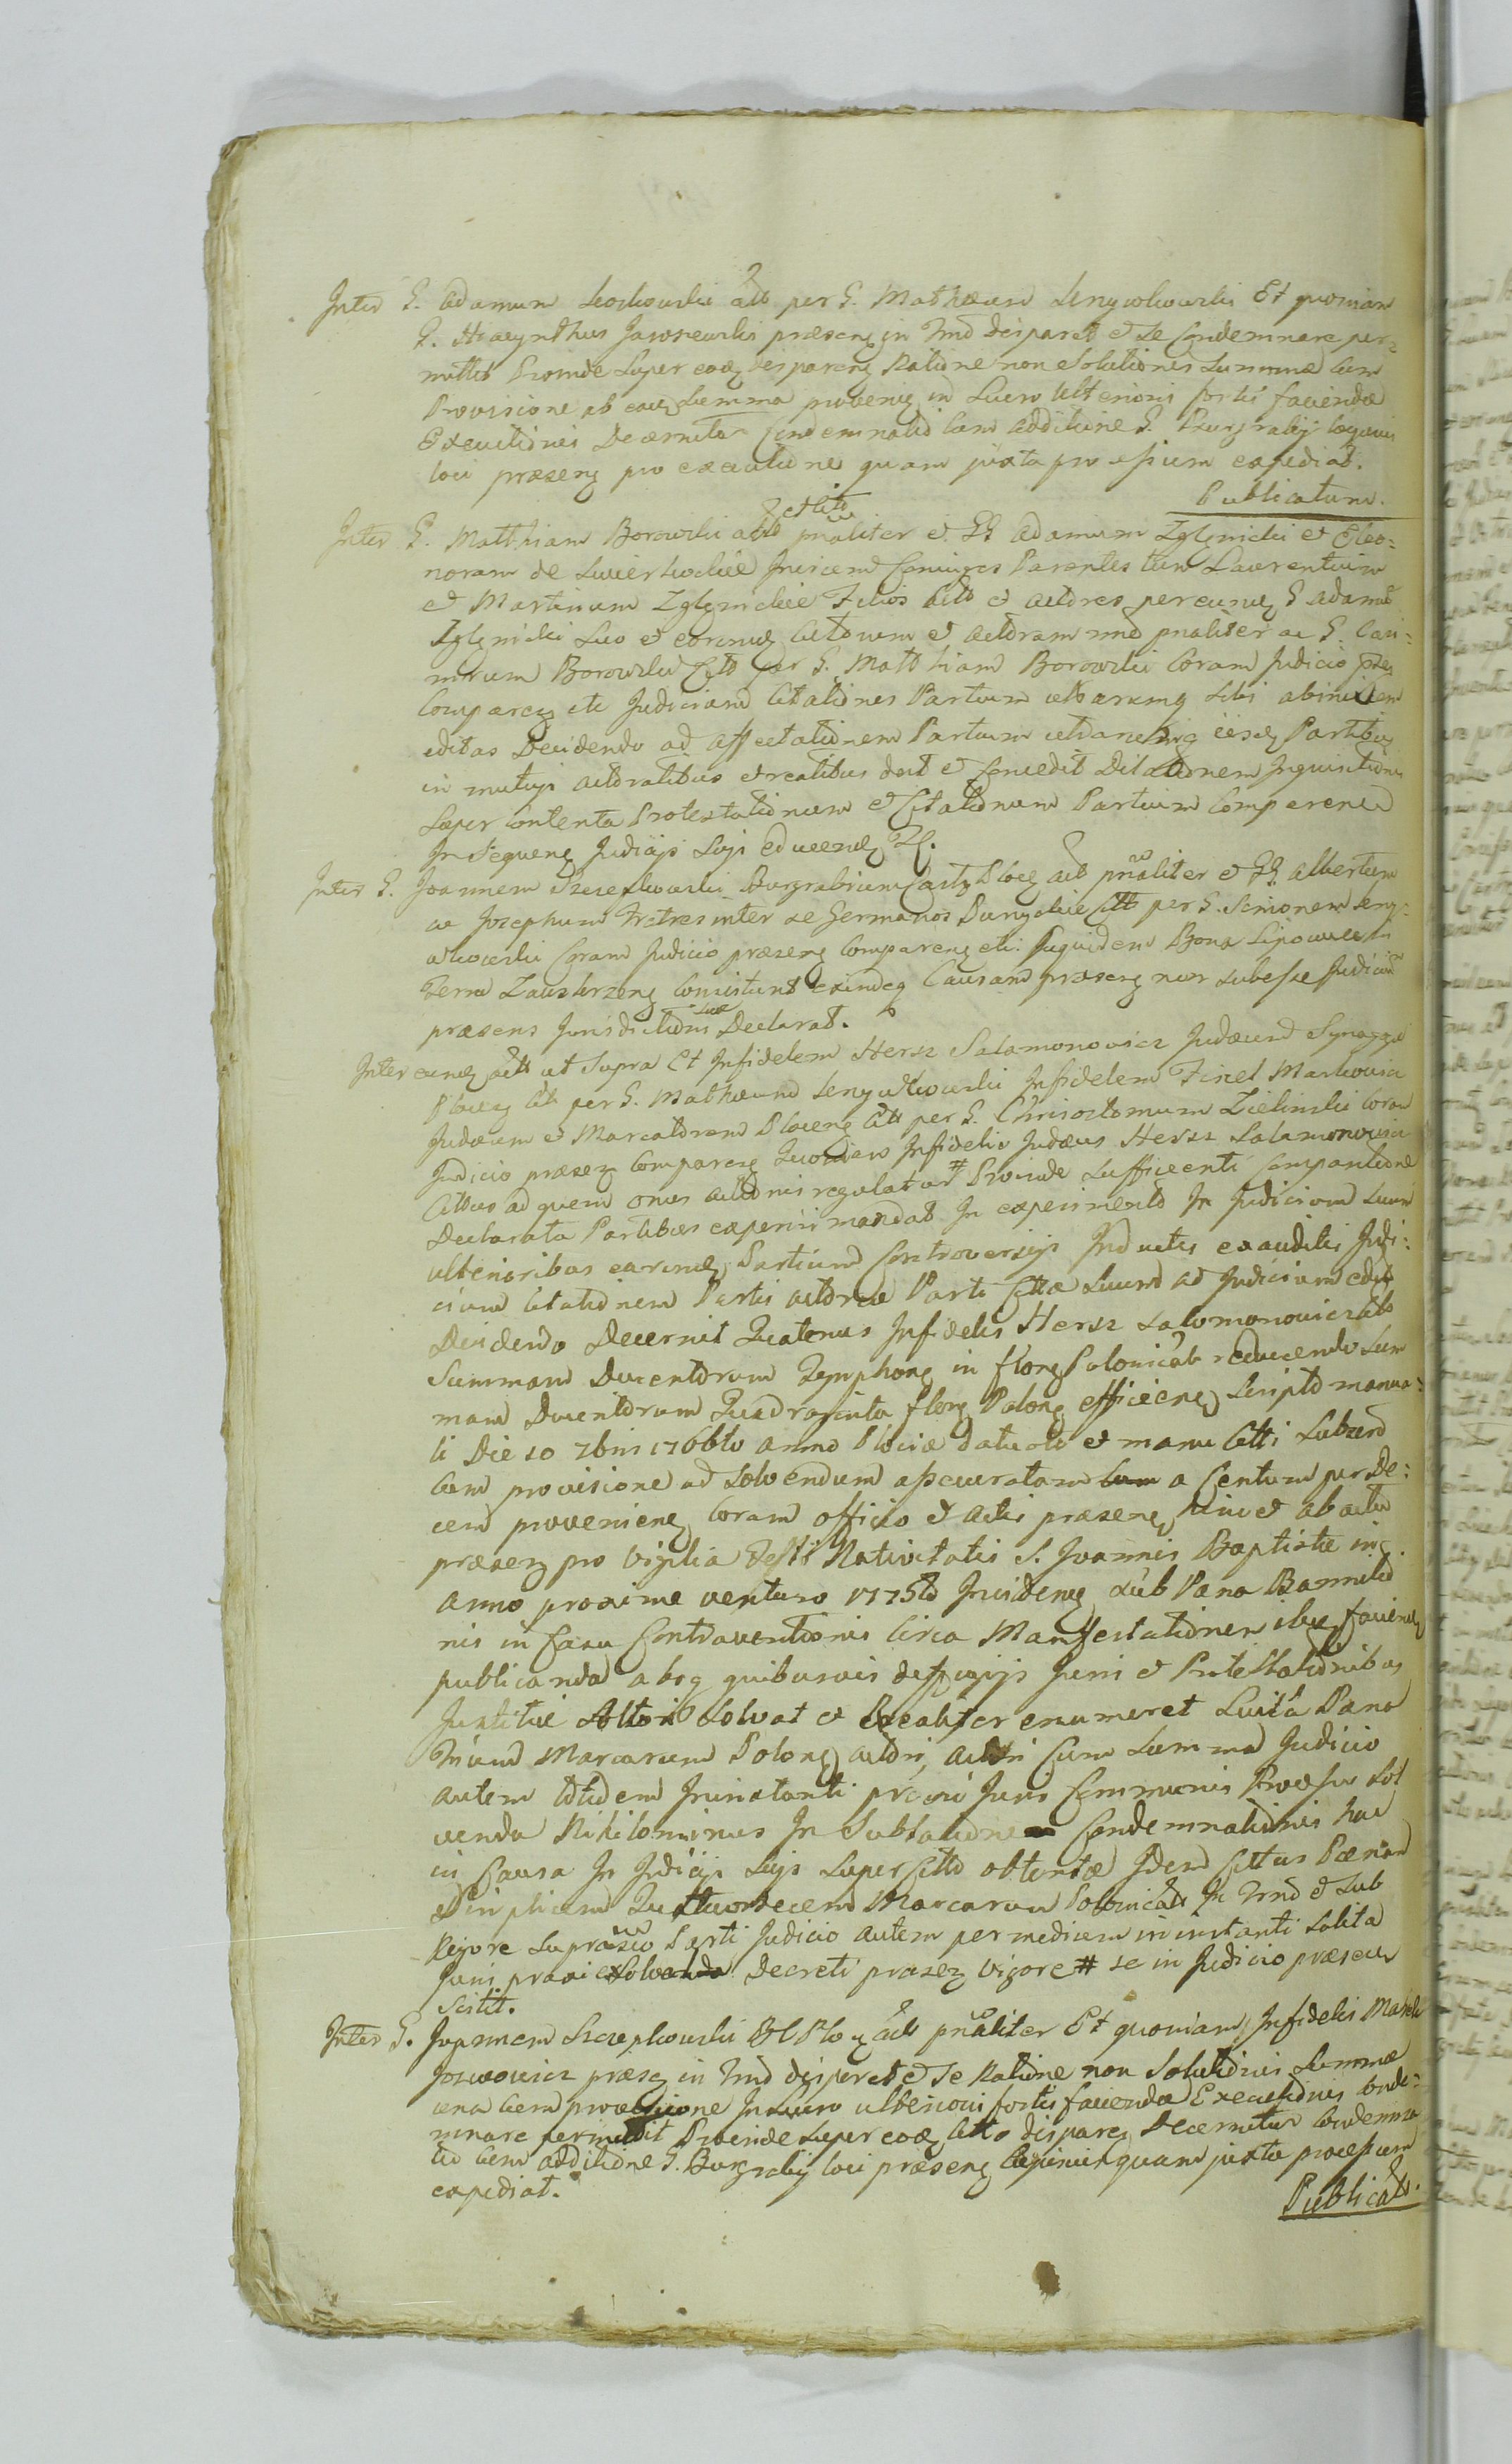 Inter G. Adamum actt per G. Mathæum Lengwkowski Et quoniam
G. Hiacynthus præsens in Tmo disparet et se Condemnare per=
mittit Proinde Super eodem disparen Ratione non Solutionis Summæ cum
Provisione ab eadem Summa provenien in Lucro Ulterioris fortis faciendæ
Executionis Decernitur Condemnatio cum Additione G. Burgrabij
loci præsen pro executione quam juxta processum expediat.
Publicatum.
Inter G. Matthiam Borowski actt et citt pnaliter et GG Adamum Zglenicki et Eleo=
noram de Swierkockie Invicem Coniuges Parentes tum Laurentium
et Martinum Zglenickie Filios citt et actores per eundem G Adamum
Zglenicki suo et eorundem citorum et actorum nne pnaliter ac G. Casi=
mirum Borowski Citt par G. Matthiam Borowski Coram Judicio psen
Comparen etc Judicium Citationes Partium utrarumq sibi abinvicem
editas Decidendo ad affectationem Partium utrarumq iisdem Partibus
in mutuis actoratibus et reatibus dat et Concedit Dilationem Inquisitionis
Super Contenta Protestationum et Citationum Partium Comparen
In Sequen Judicijs Suis educend
Inter G. Joannem Szczepkowski Burgrabium Castr Ploc act pnaliter et GG Albertum
ac Josephum Fratres inter se Germanos citt per G. Simonem Leng=
wkowski Coram Judicio præsen Comparen etc. Siquidem Bona Lipowiec in
Terra Zawskrzen Consistunt exindeq Causam præsen non subesse Judicium
præsens Jurisdictioni suæ Declarat.
Inter eund actt ut supra Et Infidelem Hersz Salamonowicz Judæum Synagogæ
Plocen citt per G. Mathæum Lengwkowski Infidelem Markowicz
Judæum et Mercatorem Plocen citt per G. Chrisostomum Zielinski Coram
Judicio præsen Comparen Quoniam Infidelis Judæus Hersz Salamonowicz
Cittus ad quem onus actionis regulatur # Proinde Sufficienti Comparitione
Declarata Partibus experiri mandat In experimento In Judicium suum
ulterioribus earund Partium Controversijs Inductis exauditis Judi=
cium Citationem Partis actoreæ Parti Cittæ suum ad Judicium edit
Decidendo Decernit Quatenus Infidelis Hersz Salomonowicz citt
Summam Ducentorum Tynphon in floren Polonical reducendo Sum
mam Ducentorum Quadraginta floren Polon efficien Scripto manua=
li Die 10 7bris 1766to Anno Plociæ datato et manu Citti Subscr
cum provisione ad solvendum assecuratam a Centum per De=
cem provenien Coram officio et actis præsen hinc et ab actu
præsen pro Vigilia Festi Nativitatis S. Joannis Baptistæ in
anno proxime venturo 1775to Inciden sub Pæna Bannitio
nis in Casu Contraventionis Circa Manifestationem ibid faciend
publicanda absq quibusvis diffugijs Juris et Protestationibus
Justitiæ Actori solvat et Realiter enumeret Luita Pæna
Trium Marcarum Polon actori, Cum Summa Judicio
autem totidem Ininstanti præmi Juris Communis Processu Sol
venda Nihilominus In Sublatione Condemnationis hac
in Causa In Judicijs Suis Super Citto obtentæ Idem Cittus Pænam
Duplicem Quatuordecem Marcarum Polonical In Tmo et sub
Rigore Suprascio Parti Judicio autem per medium in instanti Solita
Juris praxi exsolvenda Decreti præsen Vigore # se in Judicio præsen
Sistit.
Inter G. Joannem Szczepkowski B C Ploc actt pnaliter Et quoniam Infidelis
præsen in Tmo disparet et se Ratione non Solutionis Summæ
una cum provisione In Lucro ulterioris fortis faciendæ Executionis conde=
mnare permittit Proinde Super eodem Citto disparen Decernitur Condemna
tio cum additione G. Burgrabij loci præsen quam juxta processum
expediat.
Publicatt.